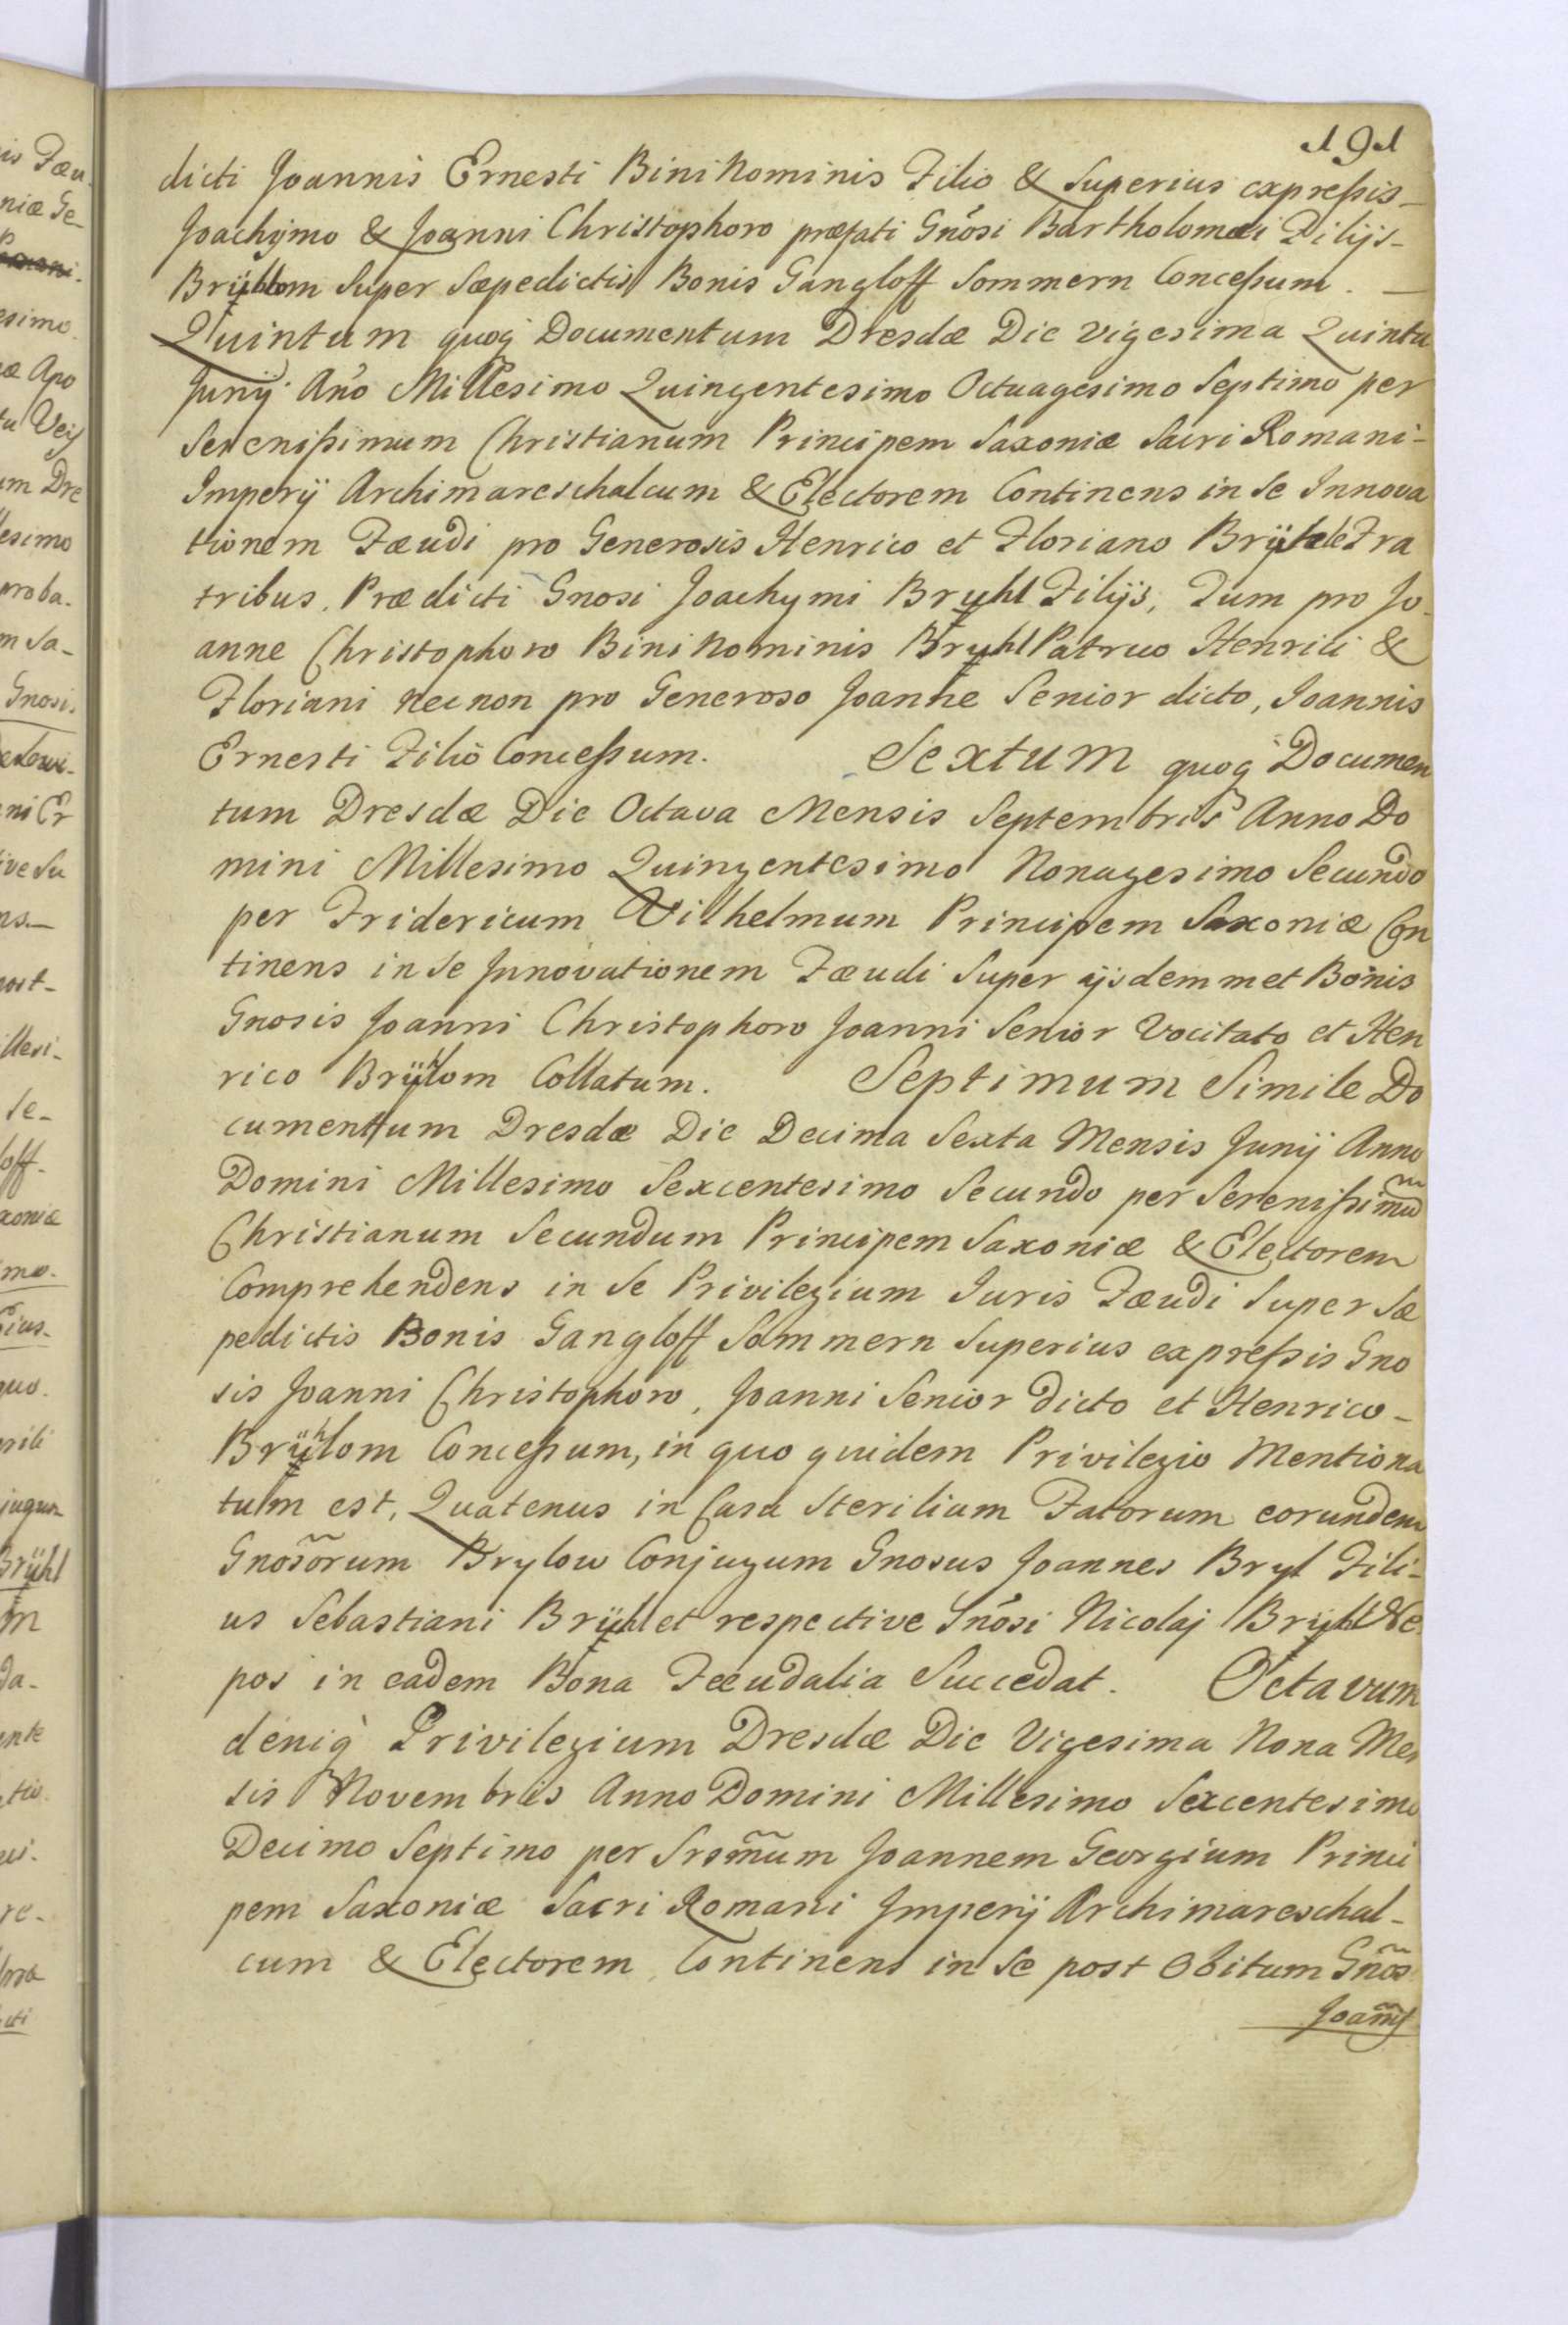 191
dicti Joannis Ernesti Bini Nominis Filio & Superius expressis_
Joachymo & Joanni Christophoro præfati Gnõsi Bartholomæi Filijs_
Brÿhlom Super Sæpedictis Bonis Gangloff Sommern Concessum. _
Quintum quoq Documentum Dresdæ Die vigesima Quinta
Junij Año Millesimo Quingentesimo Octuagesimo Septimo per
Serenissimum Christianum Principem Saxoniæ Sacri Romani_
Imperij Archimareschalcum & Electorem Continens in Se Innova
tionem Fæudi pro Generosis Henrico et Floriano Brÿhle Fra
tribus, Prædicti Gnosi Joachymi Bryhl Filijs, Tum pro Jo_
anne Christophoro Bini Nominis Bryhl Patruo Henrici &
Floriani necnon pro Generoso Joanne Senior dicto, Joannis
Ernesti Filio Concessum. Sextum quoq Documen
tum Dresdæ Die Octava Mensis Septembris Anno Do
mini Millesimo Quingentesimo Nonagesimo Secundo
per Fridericum Vilhelmum Principem Saxoniæ Con
tinens in Se Innovationem Fæudi Super ijsdemmet Bonis
Gnosis Joanni Christophoro Joanni Senior Vocitato et Hen
rico Brÿhlom Collatum. Septimum Simile Do
cumentum Dresdæ Die Decima Sexta Mensis Junij Anno
Domini Millesimo Sexcentesimo Secundo per Serenissimũ
Christianum Secundum Principem Saxoniæ & Electorem
Comprehendens in Se Privilegium Juris Fæudi Super Sæ
pedictis Bonis Gangloff Sommern Superius expressis Gno
sis Joanni Christophoro, Joanni Senior Dicto et Henrico_
Brÿhlom Concessum, in quo quidem Privilegio Mentiona
tum est, Quatenus in Casu Sterilium Fatorum eorundem
Gnosõrum Brylow Conjugum Gnosus Joannes Bryl Fili_
us Sebastiani Brÿhl et respective Gnõsi Nicolaj Brÿhl Ne
pos in eadem Bona Fæudalia Succedat. Octavum
deniq̀ Privilegium Dresdæ Die Vigesima Nona Men
sis Novembris Anno Domini Millesimo Sexcentesimo
Decimo Septimo per Srem̃um Joannem Georgium Princi
pem Saxoniæ Sacri Romani Imperij Archimareschal_
cum & Electorem Continens in Se post Obitum Gños
Joañis